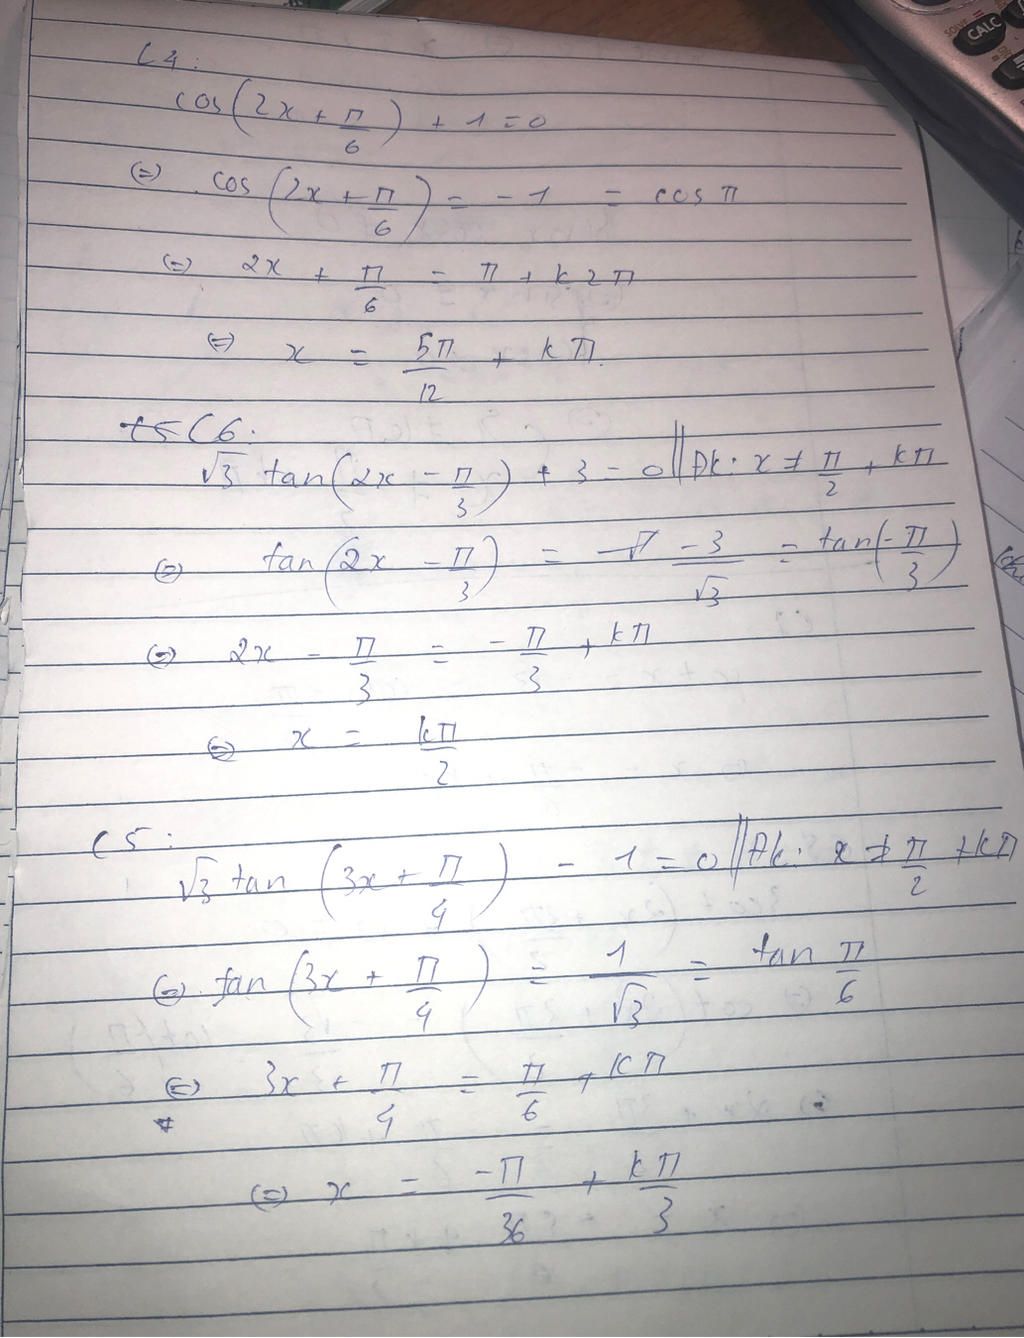 C4:
cos(2x + π/6) + 1 = 0
(=) cos(2x + π/6) = -1 = cos π
(=) 2x + π/6 = π + k2π
(=) x = 5π/12 + kπ.
C6:
√3 tan(2x - π/3) + 3 = 0 || Đk: x ≠ π/2 + kπ
(=) tan(2x - π/3) = -3/√3 = tan(-π/3)
(=) 2x - π/3 = -π/3 + kπ
(=) x = kπ/2
C5:
√3 tan(3x + π/4) - 1 = 0 || Đk: x ≠ π/2 + kπ
(=) tan(3x + π/4) = 1/√3 = tan π/6
(=) 3x + π/4 = π/6 + kπ
(=) x = -π/36 + kπ/3
CALC